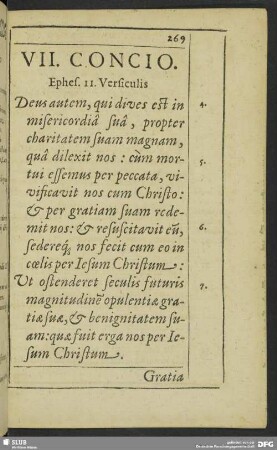 269
VII. CONCIO.
Ephes. 11. Versiculis
Deus autem, qui dives est in 4.
misericordiâ suâ, propter
charitatem suam magnam,
quâ dilexit nos: cùm mor- 5.
tui essemus per peccata, vi-
vificavit nos cum Christo:
& per gratiam suam rede-
mit nos: & resuscitavit eũ, 6.
sedereq́; nos fecit cum eo in
cœlis per Iesum Christum:
Vt ostenderet seculis futuris 7.
magnitudinẽ opulentiæ gra-
tiæ suæ, & benignitatem su-
am: quæ fuit erga nos per Ie-
sum Christum.
Gratia
SLUB
DFG